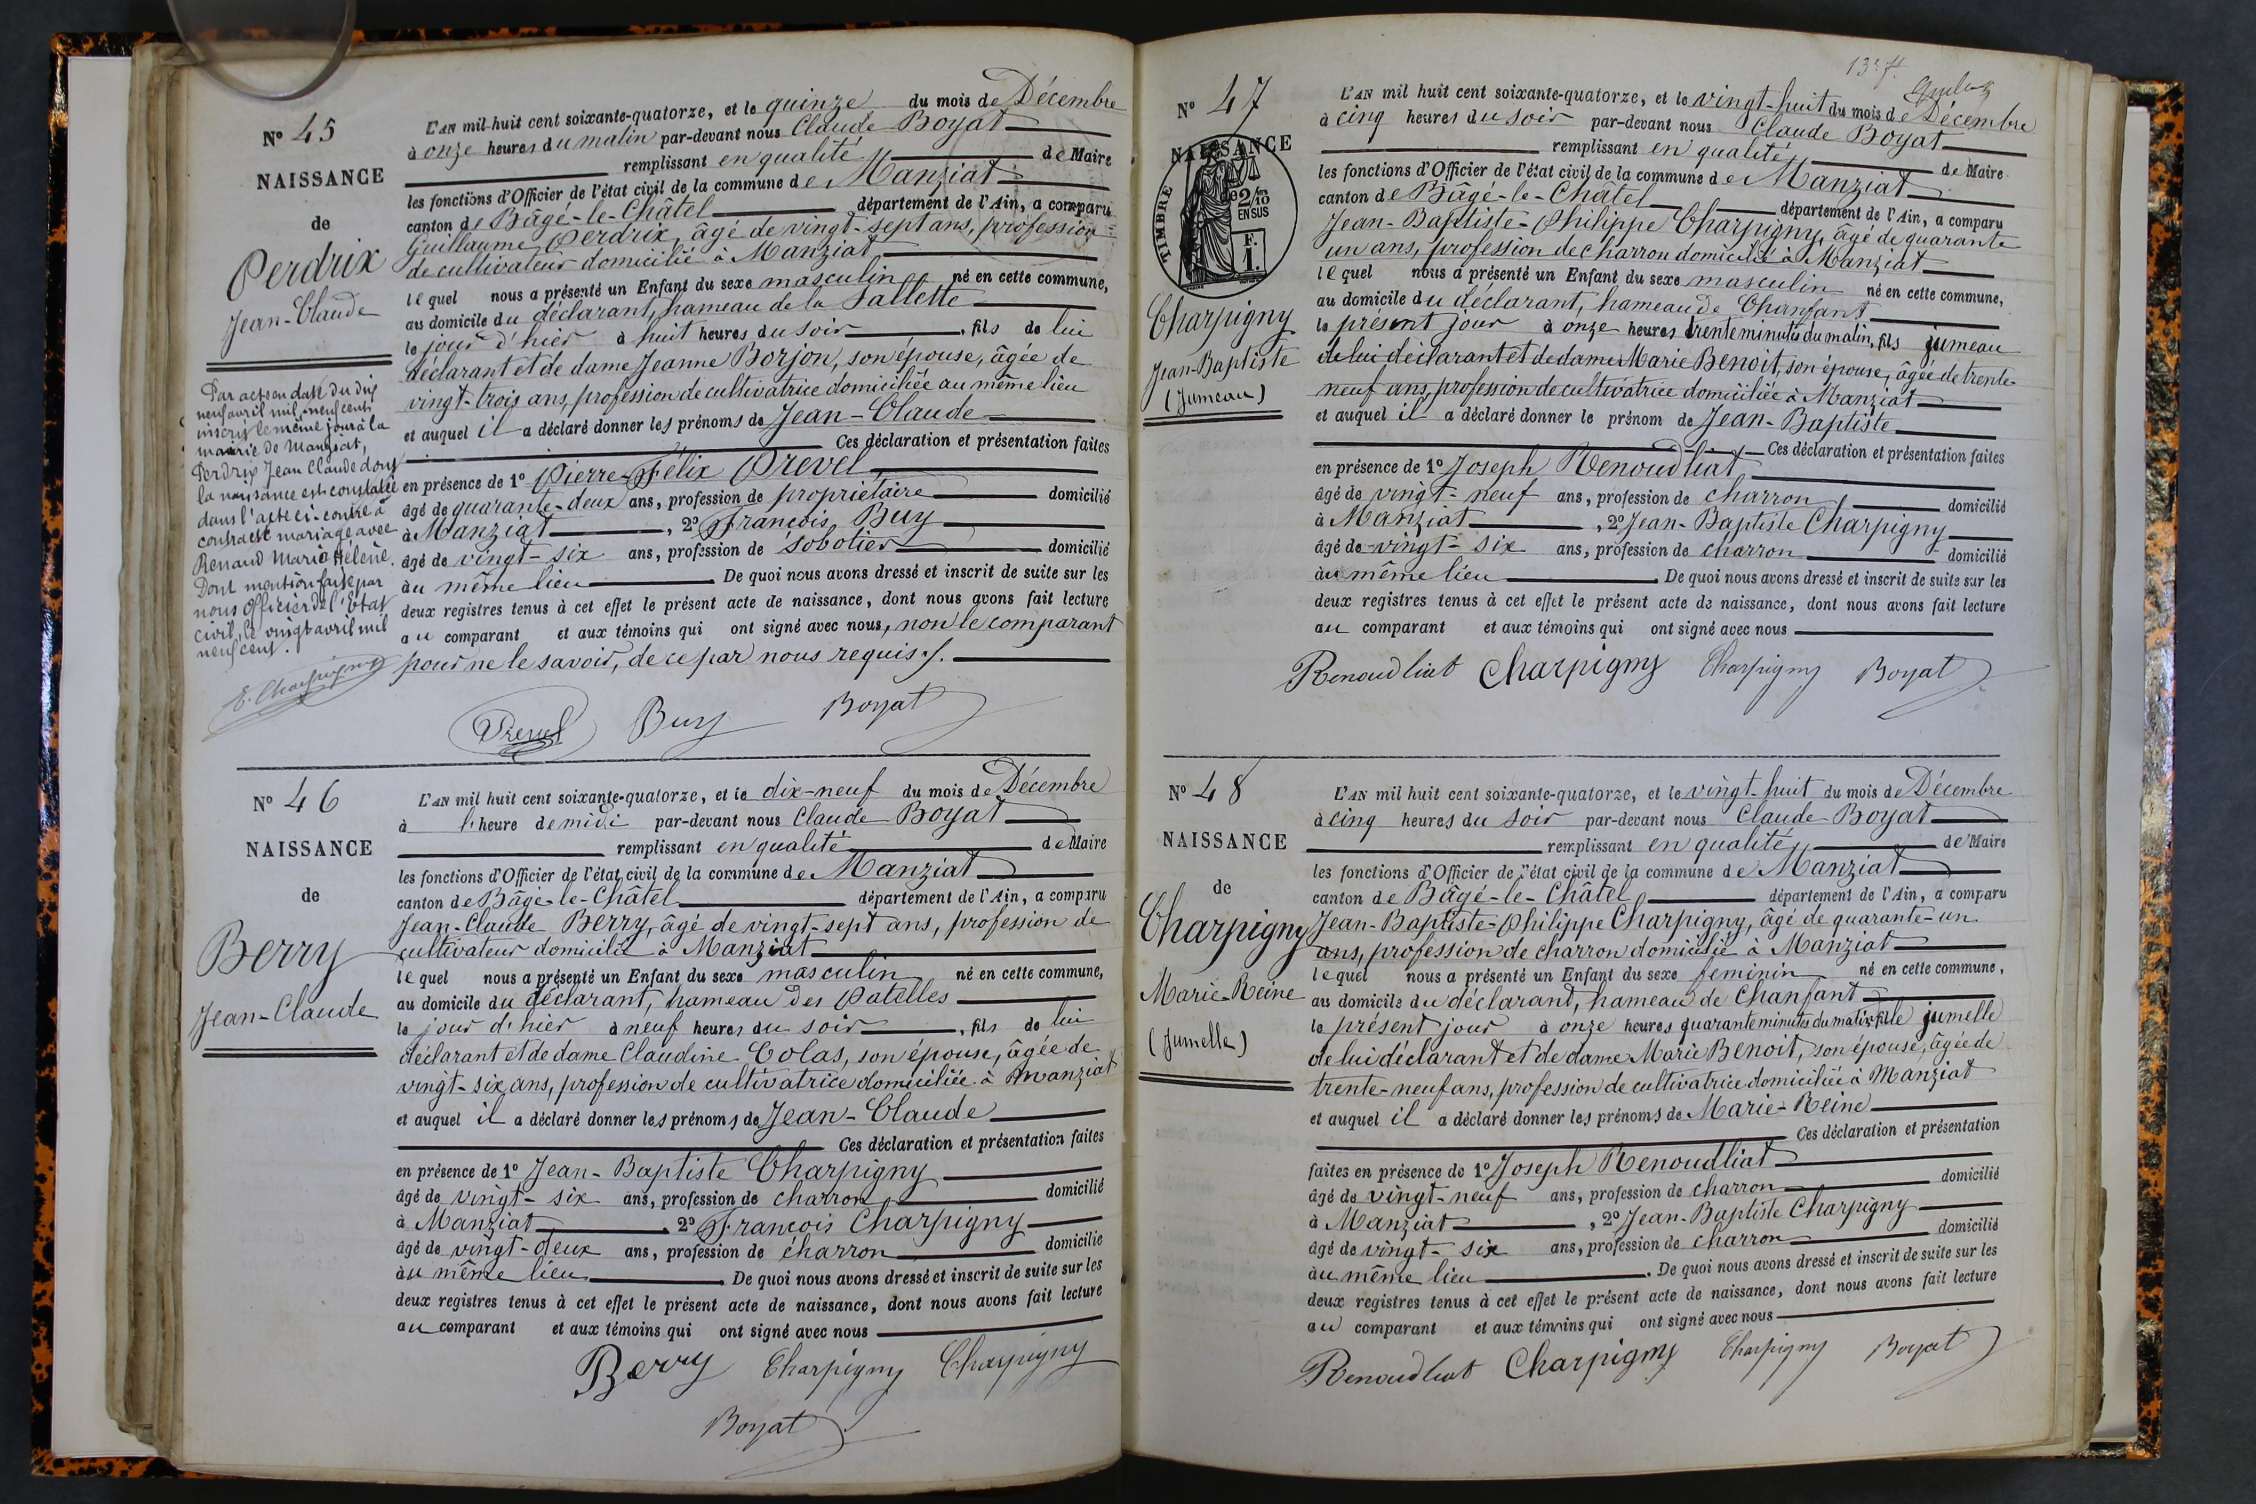 N° 45
NAISSANCE
de
Perdrix
Jean-Claude
Par acte en date du dix
neuf avril mil neuf cent
inscrit le même jour à la
mairie de Manziat,
Perdrix Jean Claude dont
la naissance est constatée
dans l'acte ci-contre a
contracté mariage avec
Renaud Marie Hélène.
Dont mention faite par
nous Officier de l'Etat
civil, le vingt avril mil
neuf cent.
E. Charpigny
L'AN mil huit cent soixante-quatorze, et le quinze du mois de Décembre
à onze heures du matin par-devant nous Claude Boyat
remplissant en qualité de Maire
les fonctions d'Officier de l'état civil de la commune de Manziat
canton de Bâgé-le-Châtel département de l'Ain, a comparu
Guillaume Perdrix, âgé de vingt-sept ans, profession
de cultivateur domicilié à Manziat
lequel nous a présenté un Enfant du sexe masculin né en cette commune,
au domicile du déclarant, hameau de la Sallette
le jour d'hier à huit heures du soir, fils de lui
déclarant et de dame Jeanne Borjon, son épouse, âgée de
vingt-trois ans, profession de cultivatrice domiciliée au même lieu
et auquel il a déclaré donner les prénoms de Jean-Claude
Ces déclaration et présentation faites
en présence de 1° Pierre-Félix Prevel
âgé de quarante-deux ans, profession de propriétaire domicilié
à Manziat, 2° François Buy
âgé de vingt-six ans, profession de sobotier domicilié
au même lieu. De quoi nous avons dressé et inscrit de suite sur les
deux registres tenus à cet effet le présent acte de naissance, dont nous avons fait lecture
au comparant et aux témoins qui ont signé avec nous, non le comparant
pour ne le savoir, de ce par nous requis ./.
Prevel Buy Boyat
N° 46
NAISSANCE
de
Berry
Jean-Claude
L'AN mil huit cent soixante-quatorze, et le dix-neuf du mois de Décembre
à l'heure de midi par-devant nous Claude Boyat
remplissant en qualité de Maire
les fonctions d'Officier de l'état civil de la commune de Manziat
canton de Bâgé-le-Châtel département de l'Ain, a comparu
Jean-Claude Berry, âgé de vingt-sept ans, profession de
cultivateur domicilié à Manziat
lequel nous a présenté un Enfant du sexe masculin né en cette commune,
au domicile du déclarant, hameau des Patelles
le jour d'hier à neuf heures du soir, fils de lui
déclarant et de dame Claudine Colas, son épouse, âgée de
vingt-six ans, profession de cultivatrice domiciliée à Manziat
et auquel il a déclaré donner les prénoms de Jean-Claude
Ces déclaration et présentation faites
en présence de 1° Jean-Baptiste Charpigny
âgé de vingt-six ans, profession de charron domicilié
à Manziat, 2° François Charpigny
âgé de vingt-deux ans, profession de charron domicilié
au même lieu. De quoi nous avons dressé et inscrit de suite sur les
deux registres tenus à cet effet le présent acte de naissance, dont nous avons fait lecture
au comparant et aux témoins qui ont signé avec nous
Berry Charpigny Charpigny
Boyat
N° 47
NAISSANCE
TIMBRE
2/10
EN SUS
F.
1.
Charpigny
Jean-Baptiste
(Jumeau)
L'AN mil huit cent soixante-quatorze, et le vingt-huit du mois de Décembre
à cinq heures du soir par-devant nous Claude Boyat
remplissant en qualité de Maire
les fonctions d'Officier de l'état civil de la commune de Manziat
canton de Bâgé-le-Châtel département de l'Ain, a comparu
Jean-Baptiste-Philippe Charpigny, âgé de quarante
un ans, profession de charron domicilié à Manziat
lequel nous a présenté un Enfant du sexe masculin né en cette commune,
au domicile du déclarant, hameau de Chanfant
le présent jour à onze heures trente minutes du matin, fils jumeau
de lui déclarant et de dame Marie Benoit, son épouse, âgée de trente-
neuf ans, profession de cultivatrice domiciliée à Manziat
et auquel il a déclaré donner le prénom de Jean-Baptiste
Ces déclaration et présentation faites
en présence de 1° Joseph Renoudliat
âgé de vingt-neuf ans, profession de charron domicilié
à Manziat, 2° Jean-Baptiste Charpigny
âgé de vingt-six ans, profession de charron domicilié
au même lieu. De quoi nous avons dressé et inscrit de suite sur les
deux registres tenus à cet effet le présent acte de naissance, dont nous avons fait lecture
au comparant et aux témoins qui ont signé avec nous
Renoudliat Charpigny Charpigny Boyat
N° 48
NAISSANCE
de
Charpigny
Marie-Reine
(Jumelle)
L'AN mil huit cent soixante-quatorze, et le vingt-huit du mois de Décembre
à cinq heures du soir par-devant nous Claude Boyat
remplissant en qualité de Maire
les fonctions d'Officier de l'état civil de la commune de Manziat
canton de Bâgé-le-Châtel département de l'Ain, a comparu
Jean-Baptiste-Philippe Charpigny, âgé de quarante-un
ans, profession de charron domicilié à Manziat
lequel nous a présenté un Enfant du sexe féminin né en cette commune,
au domicile du déclarant, hameau de Chanfant
le présent jour à onze heures quarante minutes du matin, fille jumelle
de lui déclarant et de dame Marie Benoit, son épouse, âgée de
trente-neuf ans, profession de cultivatrice domiciliée à Manziat
et auquel il a déclaré donner les prénoms de Marie-Reine
Ces déclaration et présentation
faites en présence de 1° Joseph Renoudliat
âgé de vingt-neuf ans, profession de charron domicilié
à Manziat, 2° Jean-Baptiste Charpigny
âgé de vingt-six ans, profession de charron domicilié
au même lieu. De quoi nous avons dressé et inscrit de suite sur les
deux registres tenus à cet effet le présent acte de naissance, dont nous avons fait lecture
au comparant et aux témoins qui ont signé avec nous
Renoudliat Charpigny Charpigny Boyat